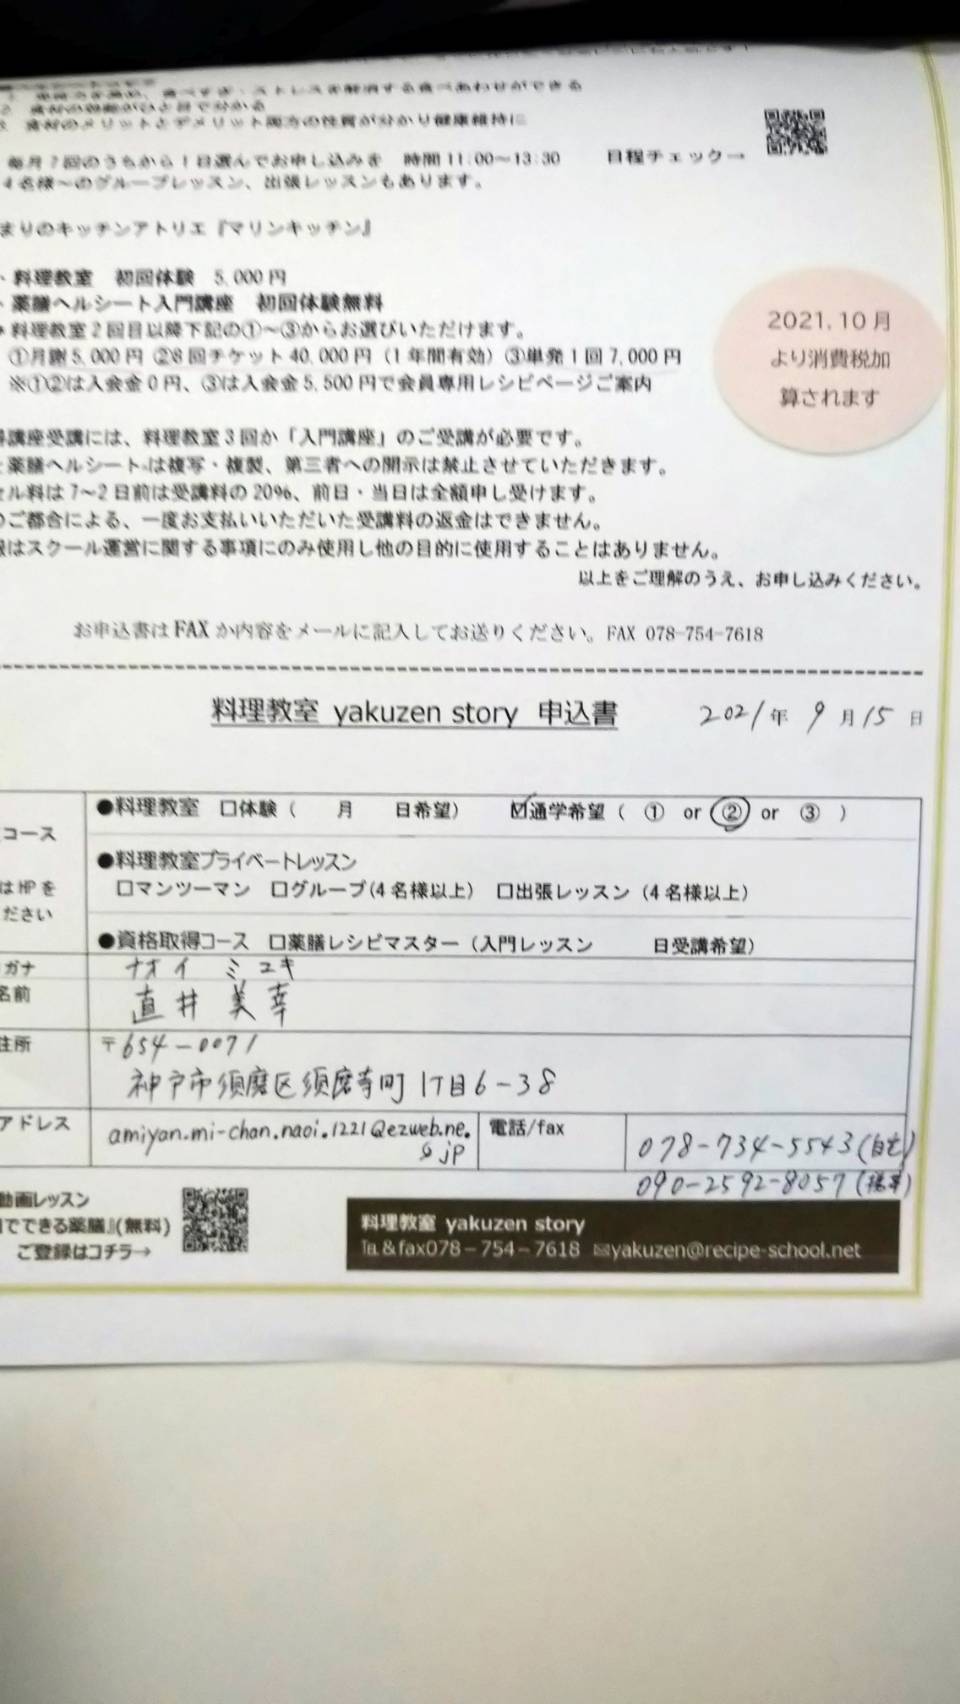 食材の効能がひと目で分かる
食材のメリットとデメリット両方の性質が分かり健康維持に
毎月7回のうちから1日選んでお申し込みを 時間11:00~13:30 日程チェック→
4名様~のグループレッスン、出張レッスンもあります。
まりのキッチンアトリエ『マリンキッチン』
・料理教室 初回体験 5,000円
・薬膳ヘルシート入門講座 初回体験無料
料理教室2回目以降下記の①~③からお選びいただけます。
①月謝5,000円 ②8回チケット40,000円(1年間有効)③単発1回7,000円
※①②は入会金0円、③は入会金5,500円で会員専用レシピページご案内
2021,10月
より消費税加
算されます
講座受講には、料理教室3回か「入門講座」のご受講が必要です。
薬膳ヘルシートは複写・複製、第三者への開示は禁止させていただきます。
セル料は7~2日前は受講料の20%、前日・当日は全額申し受けます。
のご都合による、一度お支払いいただいた受講料の返金はできません。
報はスクール運営に関する事項にのみ使用し他の目的に使用することはありません。
以上をご理解のうえ、お申し込みください。
お申込書はFAXか内容をメールに記入してお送りください。FAX 078-754-7618
料理教室 yakuzen story 申込書 2021年 9月15日
コース
はHPを
ださい
●料理教室 □体験( 月 日希望) ☑通学希望( ① or ② or ③ )
●料理教室プライベートレッスン
□マンツーマン □グループ(4名様以上) □出張レッスン(4名様以上)
●資格取得コース □薬膳レシピマスター(入門レッスン 日受講希望)
ガナ ナオイ ミユキ
名前 直井 美幸
住所 〒654-0071
神戸市須磨区須磨寺町1丁目6-38
アドレス amiyan.mi-chan.naoi.1221@ezweb.ne.
jp
電話/fax 078-734-5543(自宅)
090-2592-8057(携帯)
動画レッスン
でできる薬膳』(無料)
ご登録はコチラ→
料理教室 yakuzen story
℡&fax078-754-7618 ✉yakuzen@recipe-school.net